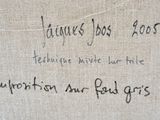 Jacques Joos 2005
technique mixte sur toile
mposition sur fond gris